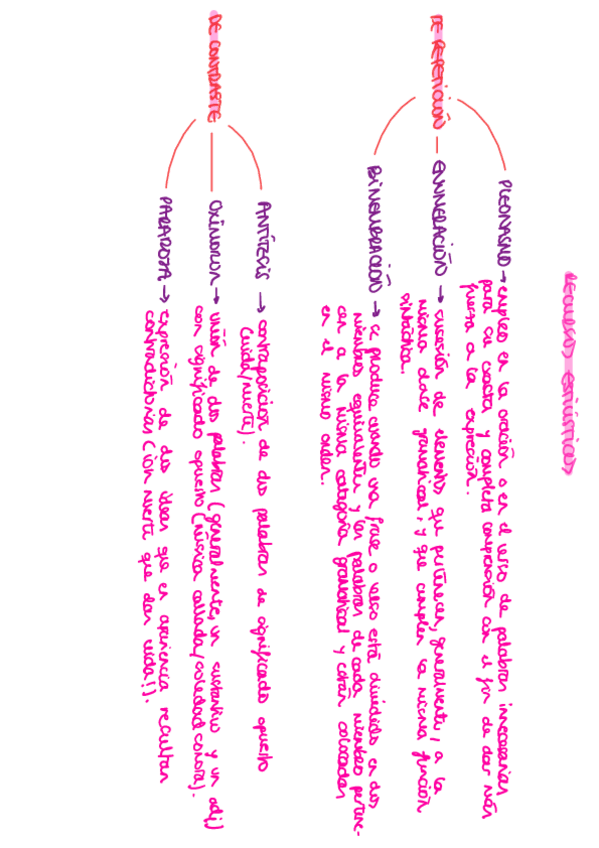 RECURSOS ESTILÍSTICOS
DE REPETICIÓN
PLEONASMO → empleo en la oración o en el verso de palabras innecesarias
para su exacta y completa comprensión con el fin de dar más
fuerza a la expresión.
ENUMERACIÓN → sucesión de elementos que pertenecen, generalmente, a la
misma clase gramatical, y que cumplen la misma función
sintáctica.
BIMEMBRACIÓN → se produce cuando una frase o verso está dividido en dos
miembros equivalentes y las palabras de cada miembro pertene-
cen a la misma categoría gramatical y están colocadas
en el mismo orden.
DE CONTRASTE
ANTÍTESIS → contraposición de dos palabras de significado opuesto
(vida/muerte).
OXÍMORON → unión de dos palabras (generalmente, un sustantivo y un adj)
con significado opuesto (música callada/soledad sonora).
PARADOJA → expresión de dos ideas que en apariencia resultan
contradictorias (¡oh muerte que das vida!).